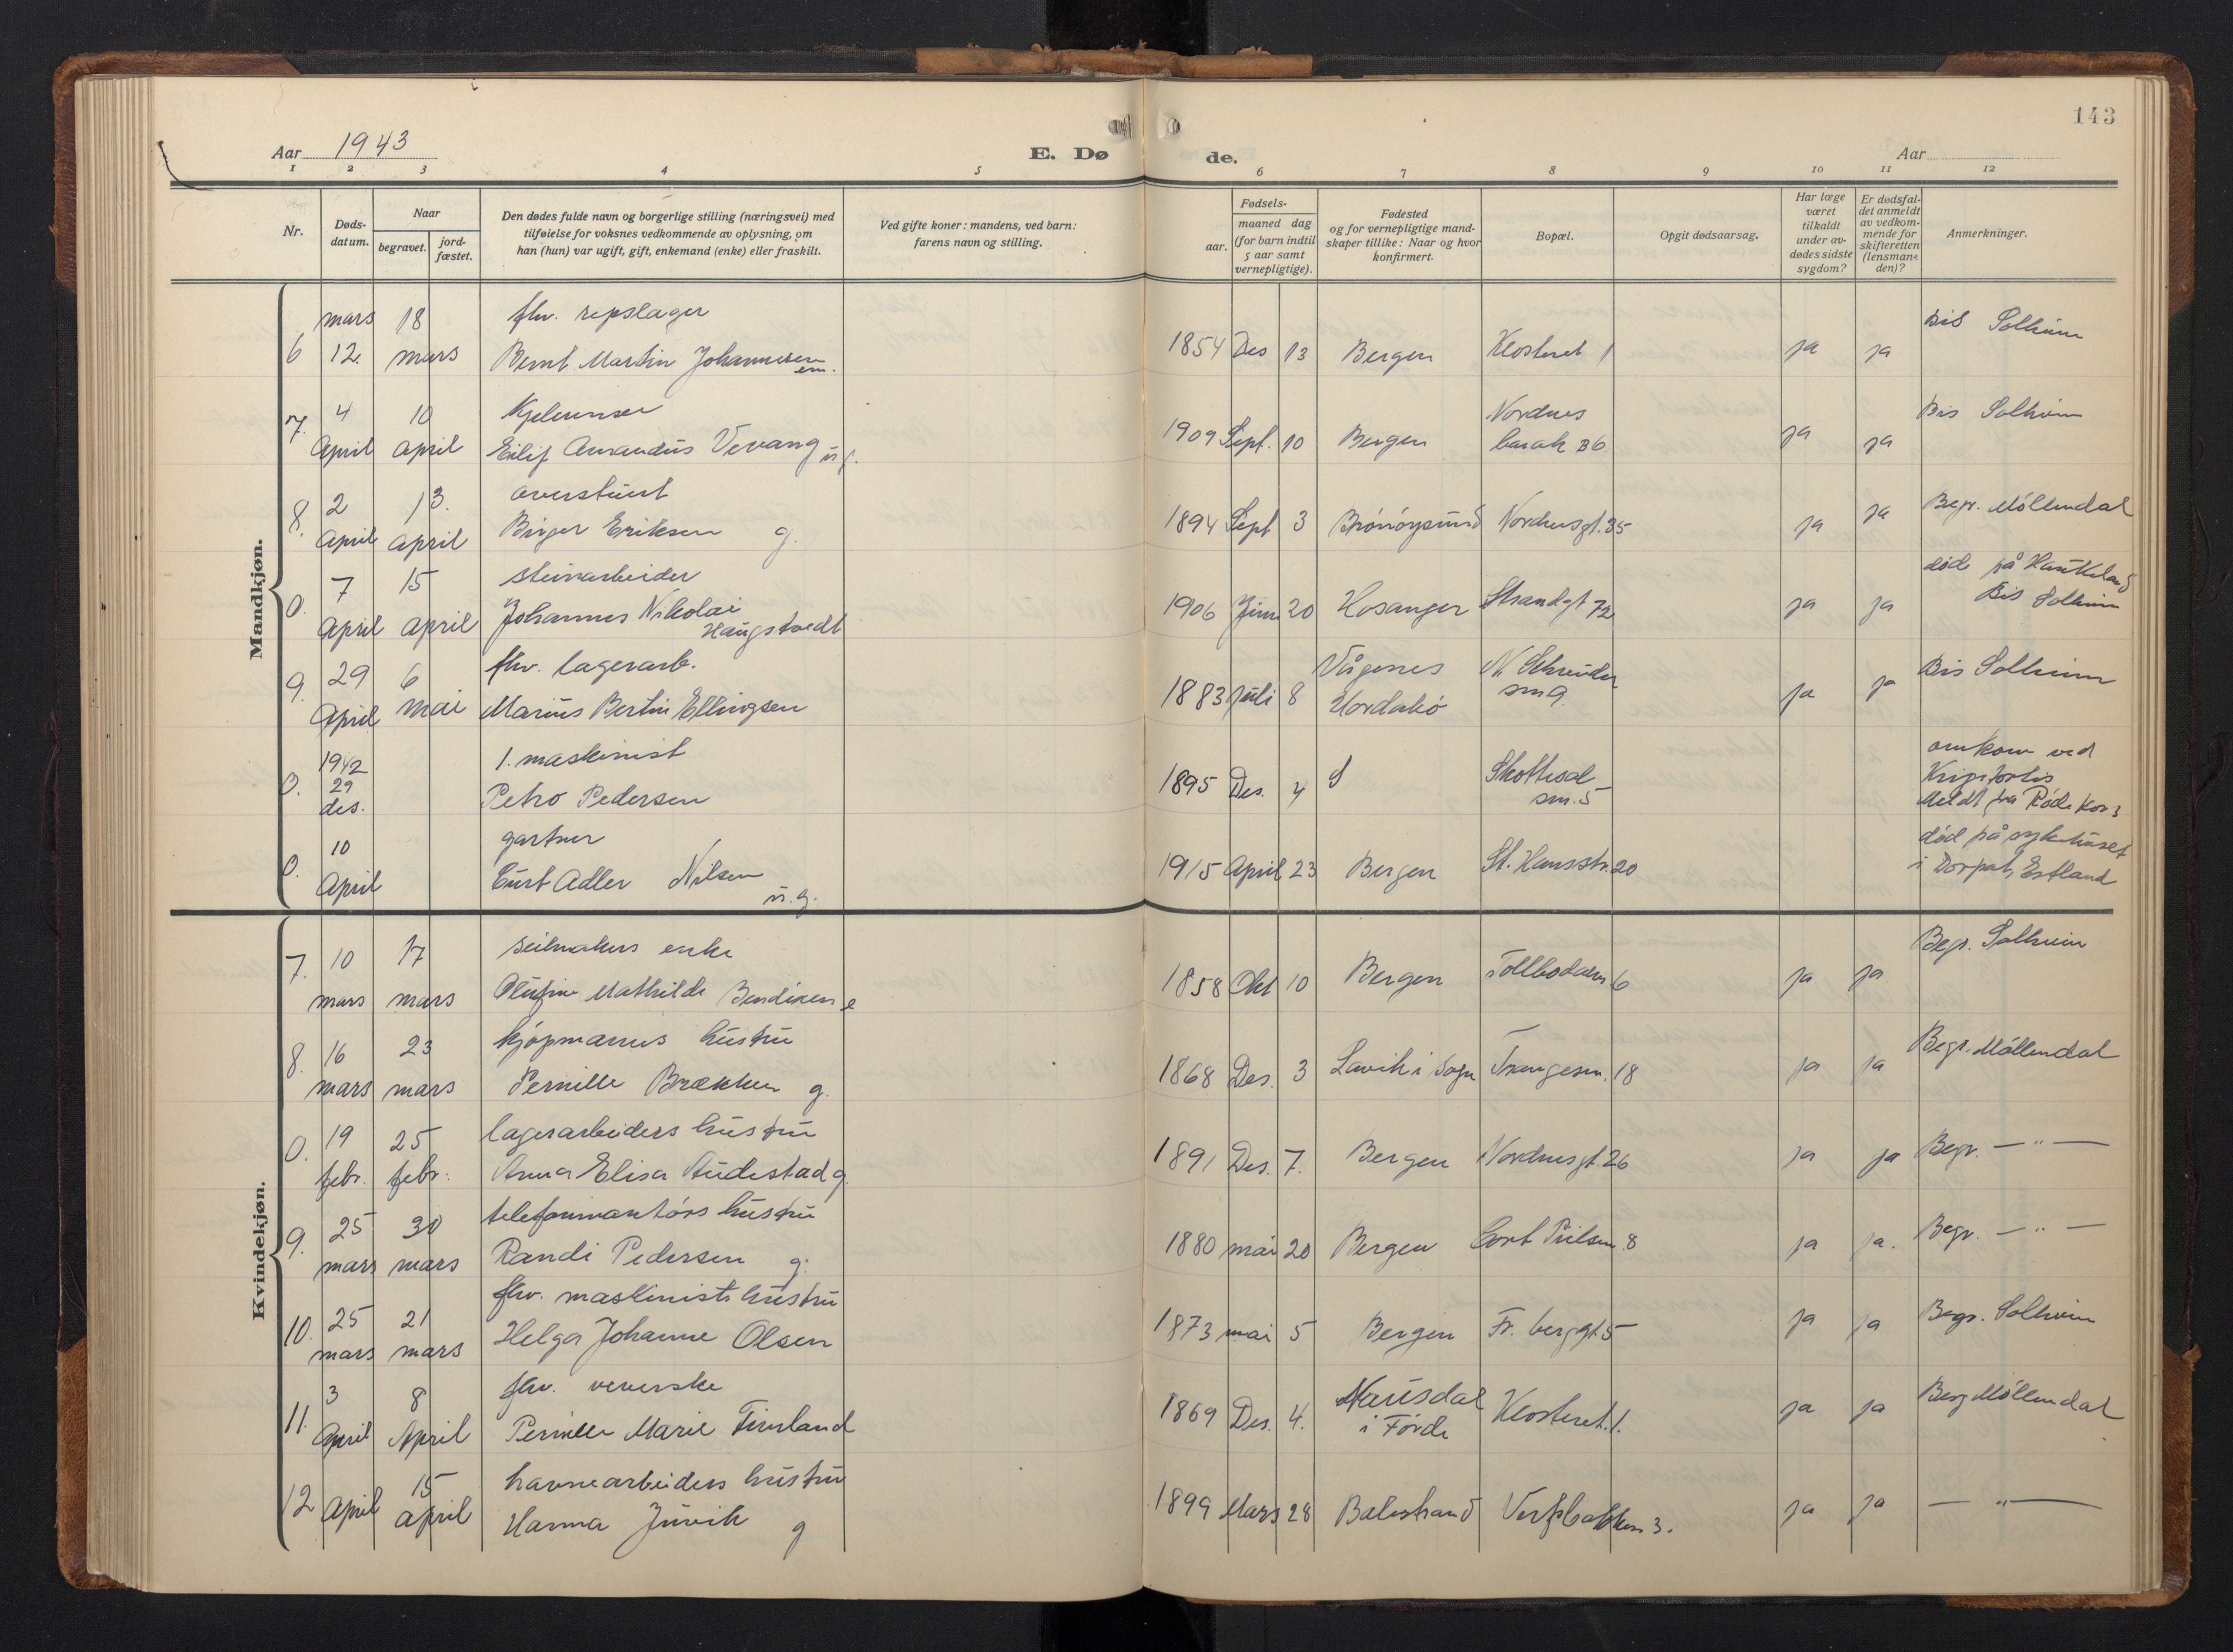 143
Aar 1943
E. Dø de.
Aar
1 2 3 4 5 6 7 8 9 10 11 12
Nr.
Døds-
datum.
Naar
begravet.
jord-
fæstet.
Den dødes fulde navn og borgerlige stilling (næringsvei) med
tilføielse for voksnes vedkommende av oplysning, om
han (hun) var ugift, gift, enkemand (enke) eller fraskilt.
Ved gifte koner: mandens, ved barn:
farens navn og stilling.
Fødsels-
aar.
maaned dag
(for barn indtil
5 aar samt
vernepligtige).
Fødested
og for vernepligtige mand-
skaper tillike: Naar og hvor
konfirmert.
Bopæl.
Opgit dødsaarsag.
Har læge
været
tilkaldt
under av-
dødes sidste
sygdom?
Er dødsfal-
det anmeldt
av vedkom-
mende for
skifteretten
(lensman-
den)?
Anmerkninger.
Mandkjøn.
mars 18 fhv. repslager Bis Solheim
6 12. mars Bernt Martin Johannesen em. 1854 Des 13 Bergen Klosteret 1 ja ja
4 10 Nordnes Bis Solheim
7. April April Eilif Amandus Vevang ug. 1909 Sept. 10 Bergen barak B6 ja ja
2 13. overstuert Begr. Möllendal
8. April April Birger Eriksen g. 1894 Sept 3 Brönöysund Nordnesgt. 35 ja ja
7 15 steinarbeider död på Haukeland
0. April April Johannes Nikolai 1906 Juni 20 Hosanger Strandgt 72 ja ja Bis Solheim
Haugstvedt
29 6 fhv. lagerarb. Vågenes N. Schreuder Bis Solheim
9. April mai Marius Bertin Ellingsen 1883 Juli 8 Hordabö sm 9. ja ja
1942 1. maskinist omkom ved
0. 29 1895 Des. 4 Skottesal Krigsforlis
des. Petro Pedersen sm. 5 Meldt fra Röde Kors
10 gartner död på sykehuset
0. April Curt Adler Nilsen u.g. 1915 April 23 Bergen St. Hansstr. 20 i Dorpat, Estland
Kvindekjøn.
10 17 seilmakers enke Begr. Solheim
7. mars mars Mathilde Bendixen e 1858 Okt 10 Bergen Tollbodalm 6 ja ja
16 23 kjöpmanns hustru Begr. Möllendal
8. mars mars Pernille Brækken g. 1868 Des. 3 Lavik i Sogn Trangesm. 18 ja ja
19 25 lagerarbeiders hustru
0. febr. febr. Anna Elisa Audestad g. 1891 Des. 7. Bergen Nordnesgt. 26 ja ja Begr. — " —
25 30 telefonmontörs hustru
9. mars mars Randi Pedersen g. 1880 mai 20 Bergen Cort Pielsm. 8 ja ja. Begr. — " —
25 21 fhv. maskinists hustru
10. mars mars Helga Johanne Olsen 1873 mai 5 Bergen Fr. berggt. 5 ja ja Begr. Solheim
3 8 fhv. veverske Naustdal
11. April April Pernille Marie 1869 Des. 4. i Förde Klosteret. 1. ja ja Begr Möllendal
15 havnearbeiders hustru
12 April April Hanna Juvik g 1899 Mars 28 Balestrand Verftsbakken 3. ja ja — " —